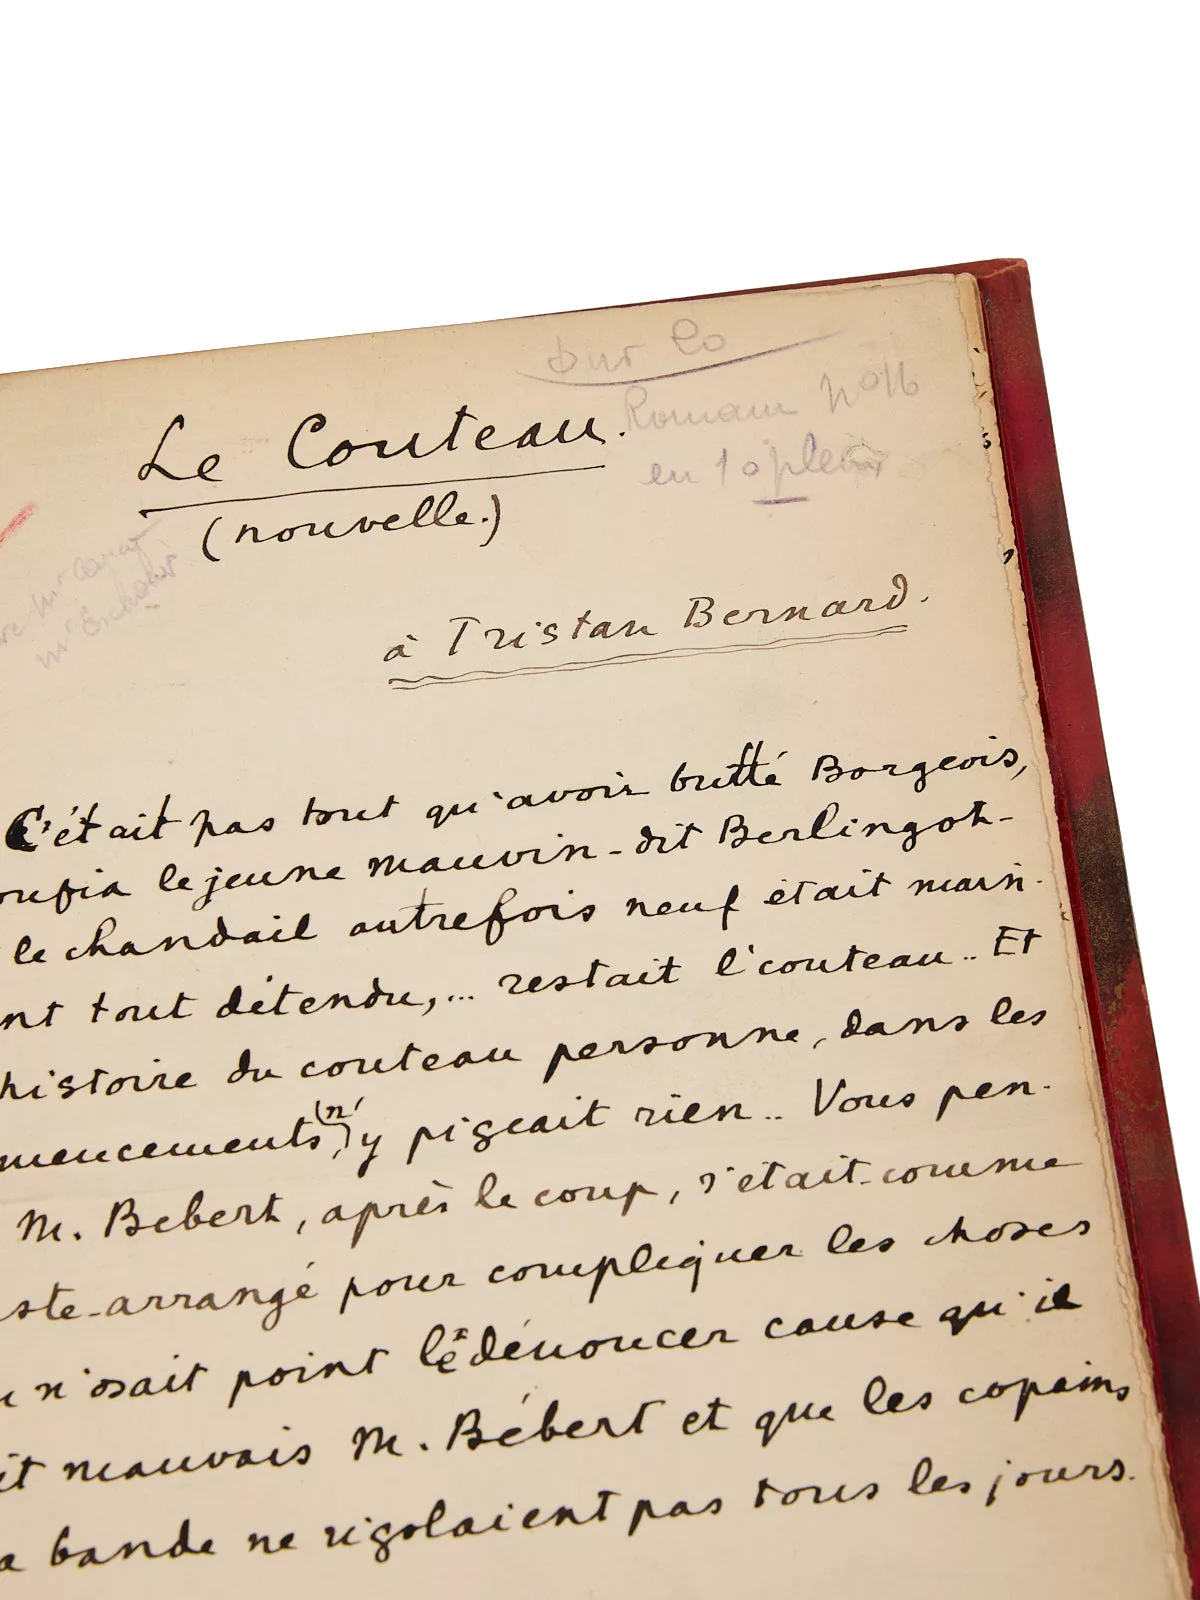 sur 20
Romain n° 16
en 10 plein
Le Couteau.
(nouvelle.)
à Tristan Bernard.
C'était pas tout qu'avoir butté Borgeois,
oufia le jeune Mauvin-dit Berlingot-
le chandail autrefois neuf était main-
nt tout détendu,... restait l'couteau.. Et
histoire du couteau personne, dans les
mencements, (n') y pigeait rien.. Vous pen-
M. Bébert, après le coup, s'était-comme
ste-arrangé pour compliquer les choses
n'osait point le dénoncer cause qu'il
it mauvais M. Bébert et que les copains
a bande ne rigolaient pas tous les jours.